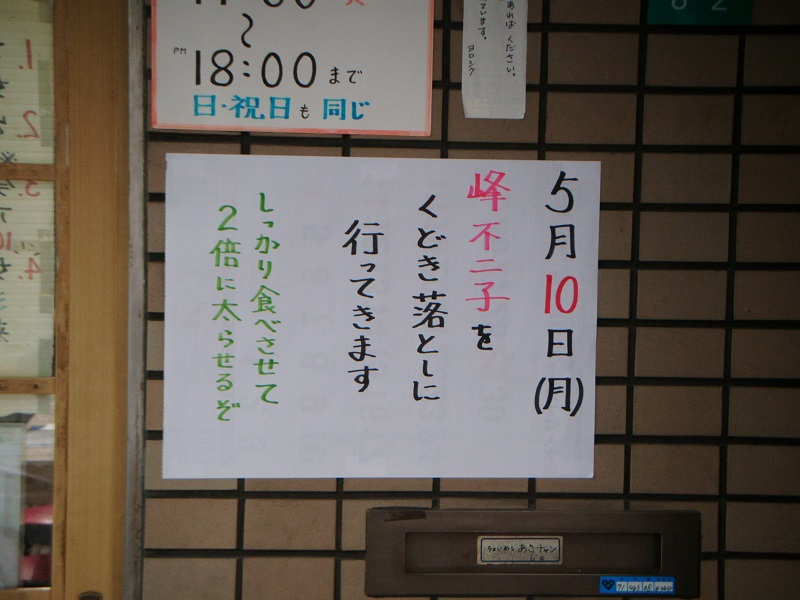 18:00まで
PM
日・祝日も同じ
あれば ください。
ています。
ヨロシク
5月10日(月)
峰不二子を
くどき落としに
行ってきます
しっかり食べさせて
2倍に太らせるぞ
1.
2.
3.
4.